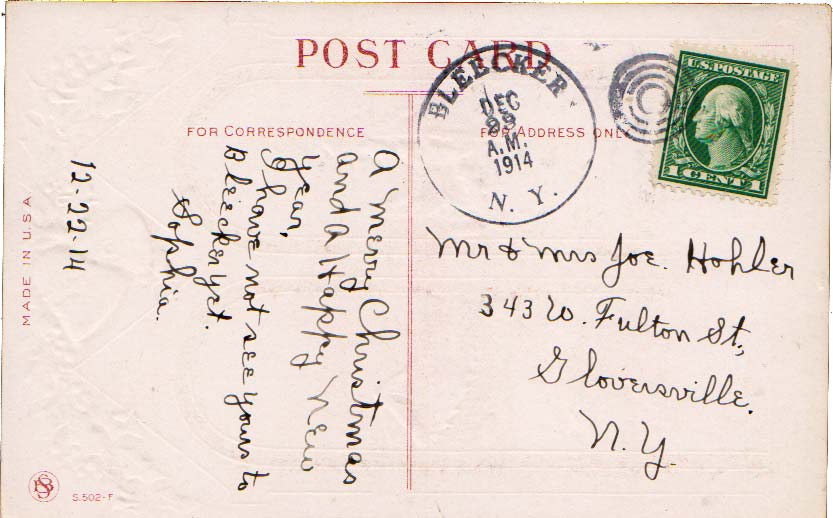 POST CARD
BLEECKER
DEC
A.M.
1914
N. Y.
U.S. POSTAGE
1 CENT 1
FOR CORRESPONDENCE
FOR ADDRESS ONLY
A Merry Christmas
and a Happy New
Year,
I have not see yours to
Bleecker yet.
Sophia.
12-22-14
Mr & Mrs Joe. Hohler
343 W. Fulton St,
Gloversville.
N. Y.
MADE IN U.S.A
S.502-F